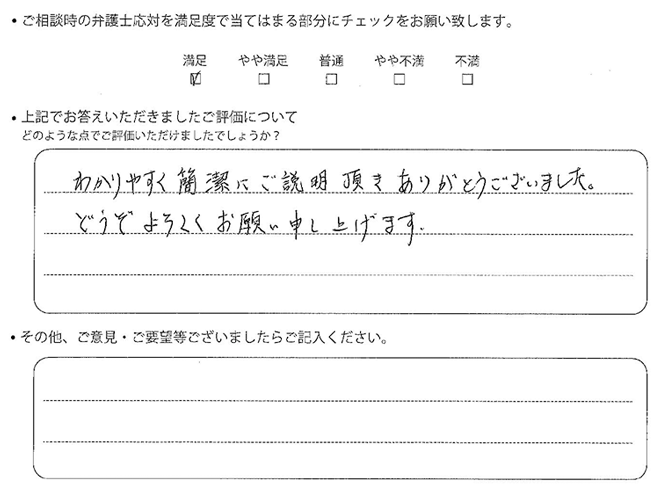 ・ご相談時の弁護士応対を満足度で当てはまる部分にチェックをお願い致します。
満足 やや満足 普通 やや不満 不満
☑ □ □ □ □
・上記でお答えいただきましたご評価について
どのような点でご評価いただけましたでしょうか？
わかりやすく簡潔にご説明頂きありがとうございました。
どうぞよろしくお願い申し上げます.
・その他、ご意見・ご要望等ございましたらご記入ください。